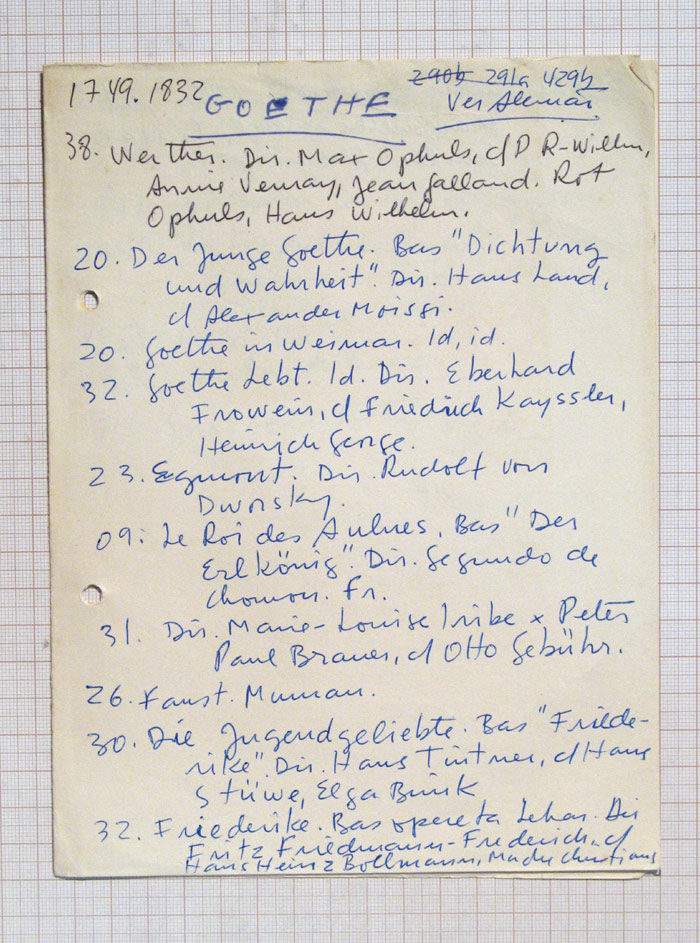 1749.1832 GOETHE 290b 291a 429b
Ver Alemán.
38. Werther. Dir. Max Ophuls, c/ P R-Willm,
Annie Vernay, Jean Galland. Rot
Ophuls, Hans Wilhelm.
20. Der Junge Goethe. Bas "Dichtung
und Wahrheit". Dir. Hans Land,
c/ Alexander Moissi.
20. Goethe in Weimar. Id, id.
32. Goethe Lebt. Id. Dir. Eberhard
Frowein, c/ Friedrich Kayssler,
Heinrich George.
23. Egmont. Dir. Rudolf von
Dworsky.
09. Le Roi des Aulnes. Bas "Der
Erlkönig". Dir. Segundo de
Chomon. Fr.
31. Dir. Marie-Louise Iribe x Peter
Paul Brauer, c/ Otto Gebühr.
26. Faust. Murnau.
30. Die Jugendgeliebte. Bas "Friede-
rike". Dir. Hans Tintner, c/ Hans
Stüwe, Elga Brink
32. Friederike. Bas opereta Lehar. Dir
Fritz Friedmann-Frederich, c/
Hans Heinz Bollmann, Mady Christians